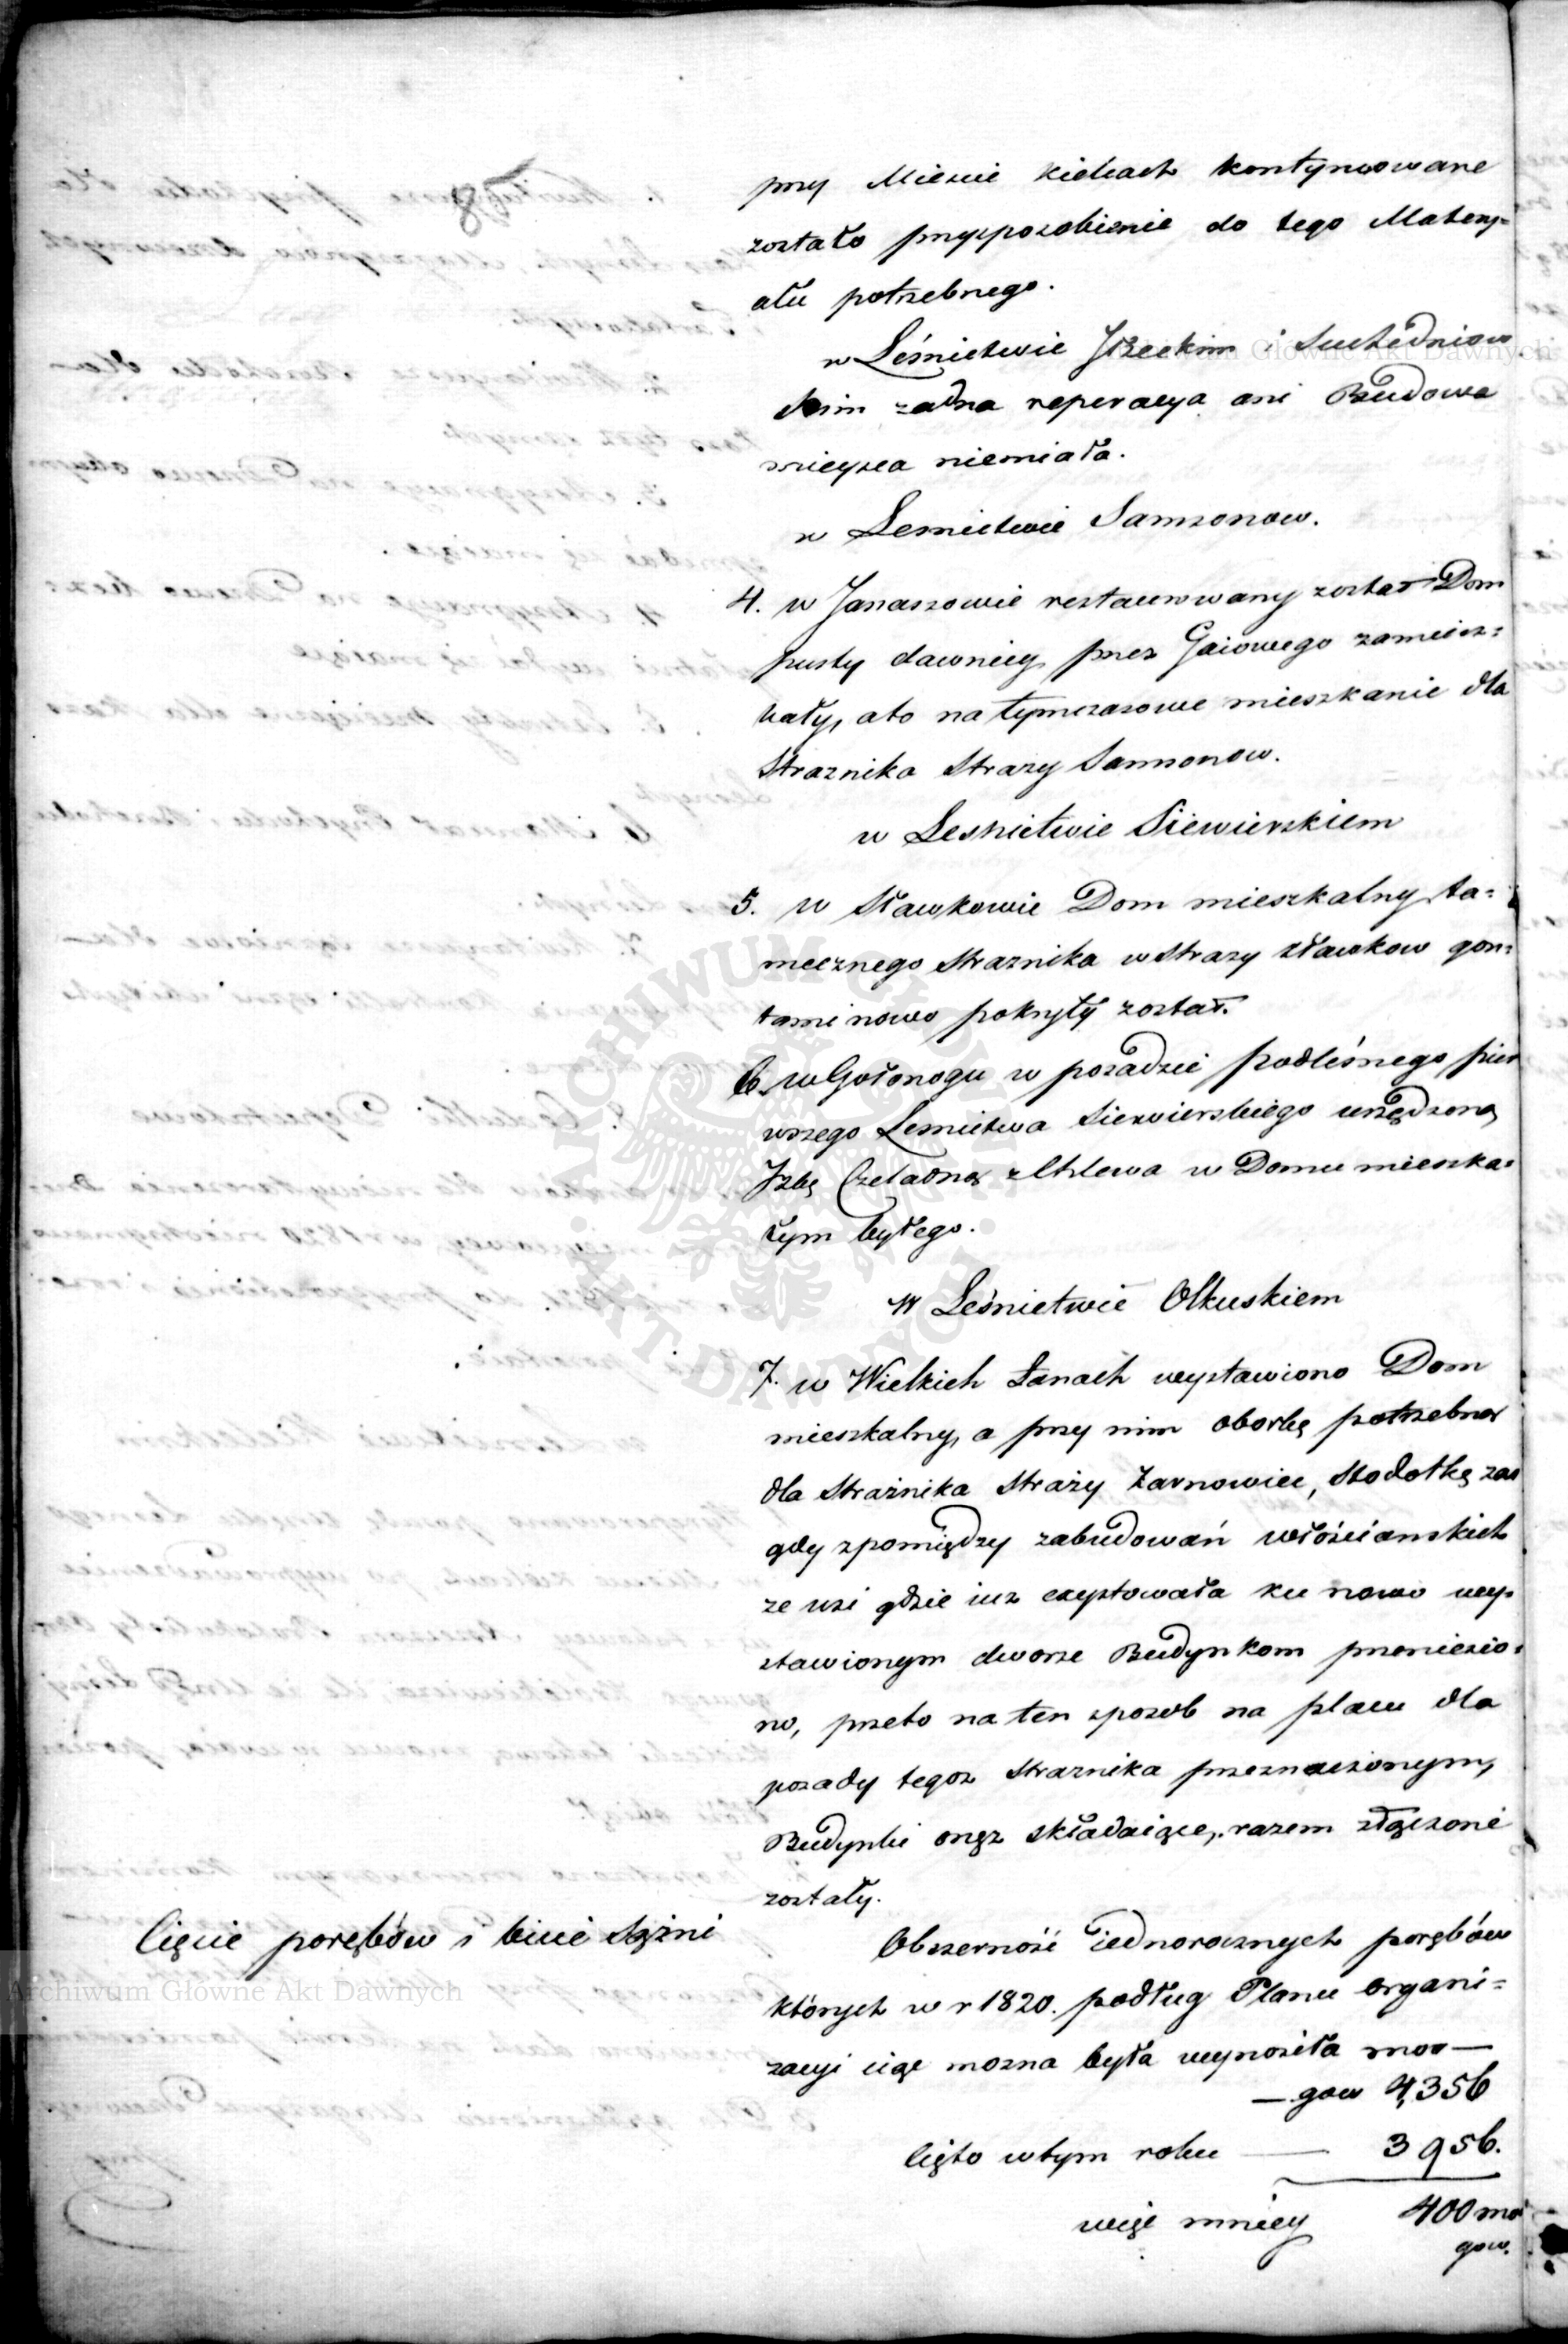 8
przy Mieście Kielcach kontynuowane
zostało przysposobienie do tego Matery=
ału potrzebnego.
w Leśnictwie Iłzeckim i Suchedniow
skim zadna reperacya ani Budowa
mieysca niemiała.
w Lesnictwie Samsonow.
4. w Janaszowie restaurowany został Dom
pusty dawniey przez Gaiowego zamiesz=
kały, a to na tymczasowe mieszkanie dla
Straznika Strazy Samsonow.
w Lesnictwie Siewierskiem
5. w Sławkowie Dom mieszkalny ta=
mecznego Straznika w Strazy Sławkow gon=
tami nowo pokryty został.
6. w Gołonogu w posadzie podleśnego pier
wszego Lesnictwa Siewierskiego urządzono
Izbę Czeladną z Chlewa w Domu mieszka=
łym byłego.
w Leśnictwie Olkuskiem
7. w Wielkich Łanach wystawiono Dom
mieszkalny, a przy nim oborkę potrzebną
dla Strażnika Straży Żarnowiec, Stodołkę zas
gdy zpomiędzy zabudowań włościanskich
ze wsi gdzie iuz exystowała ku nowo wy=
stawionym dworze Budynkom przeniesio=
no, przeto na ten sposob na placu dla
posady tegoz Straznika przeznaczonym,
Budynki onęz składaiące, razem złączone
zostały.
Cięcie porębów i bicie Sążni
Obszerność iednorocznych porębów
których w r 1820. podług Planu organi=
zacyi ciąć mozna była wynosiła mor—
—gow 4,356
Cięto w tym roku —— 3956.
więc mniey 400 mor
gow.
Archiwum Główne Akt Dawnych
Archiwum Główne Akt Dawnych
ARCHIWUM GŁÓWNE · AKT DAWNYCH ·